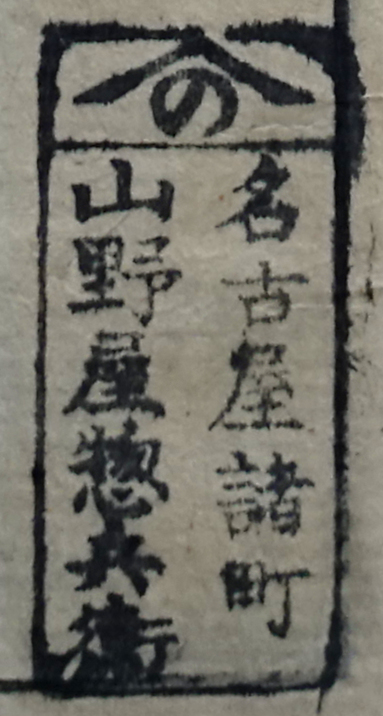 の
名古屋諸町
山野屋惣兵衛